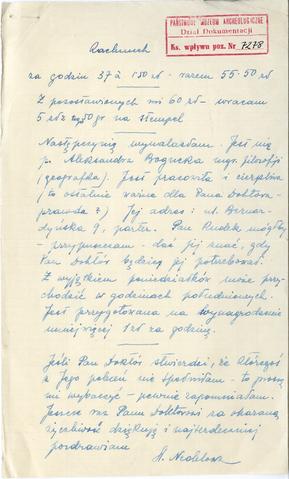 PAŃSTWOWE MUZEUM ARCHEOLOGICZNE
Dział Dokumentacji
Ks. wpływu poz. Nr 7278
Rachunek
za godzin 37 à 1.50 zł - razem 55.50 zł
Z pozostawionych mi 60 zł - wracam
5 zł na stempel
Następczynię wynalazłam. Jest nią
p. Aleksandra mgr. filozofii
(geografka). Jest pracowita i cierpliwa
(to ostatnie ważne dla Pana Doktora -
prawda?) Jej adres: ul. Bernar-
dyńska 9, parter. Pan Rudek mógłby
- przypuszczam - dać jej znać, gdy
Pan Doktór będzie jej potrzebować.
Z wyjątkiem poniedziałków może przy-
chodzić w godzinach południowych.
Jest przygotowana na wynagrodzenie
mniejwięcej 1 zł za godzinę.
Jeśli Pan Doktór stwierdzi, że któregoś
z Jego poleceń nie spełniłam - to proszę
mi wybaczyć - pewnie zapomniałam.
Jeszcze raz Panu Doktorowi za okazaną
życzliwość dziękuję i najserdeczniej
pozdrawiam